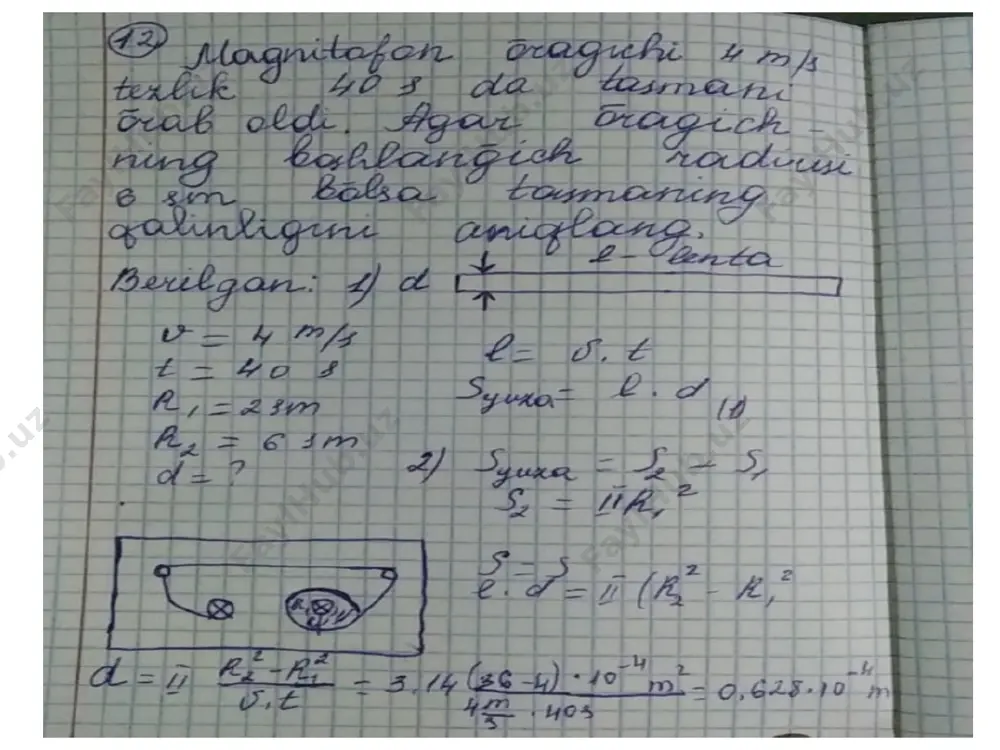 12 Magnitafon ōragichi 4 m/s
tezlik 40 s da tasmani
ōrab oldi. Agar ōragich-
ning bashlanğich radiusi
6 sm bōlsa tasmaning
qalinligini aniqlang.
Berilgan: 1) d l - lenta
υ = 4 m/s
t = 40 s
R₁ = 2 sm
R₂ = 6 sm
d = ?
l = υ. t
Syuza = l . d (1)
2) Syuza = S₂ - S₁
S₂ = πR₁²
S = S
l. d = π (R₂² - R₁²
d = π (R₂² - R₁²)/(υ.t) = 3.14 ((36-4) · 10⁻⁴ m²)/(4 m/s · 40s) = 0.628·10⁻⁴ m
FaylHub.uz
FaylHub.uz
FaylHub.uz
FaylHub.uz
FaylHub.uz